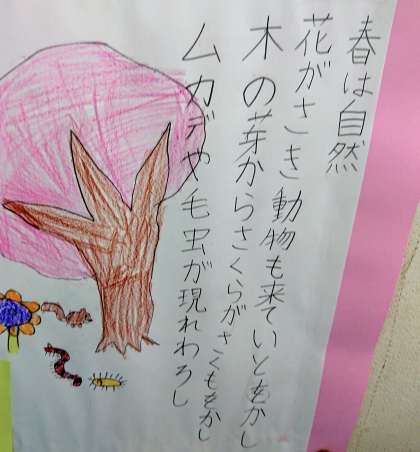 春は自然
花がさき動物も来ていとをかし
木の芽からさくらがさくもをかし
ムカデや毛虫が現れわろし